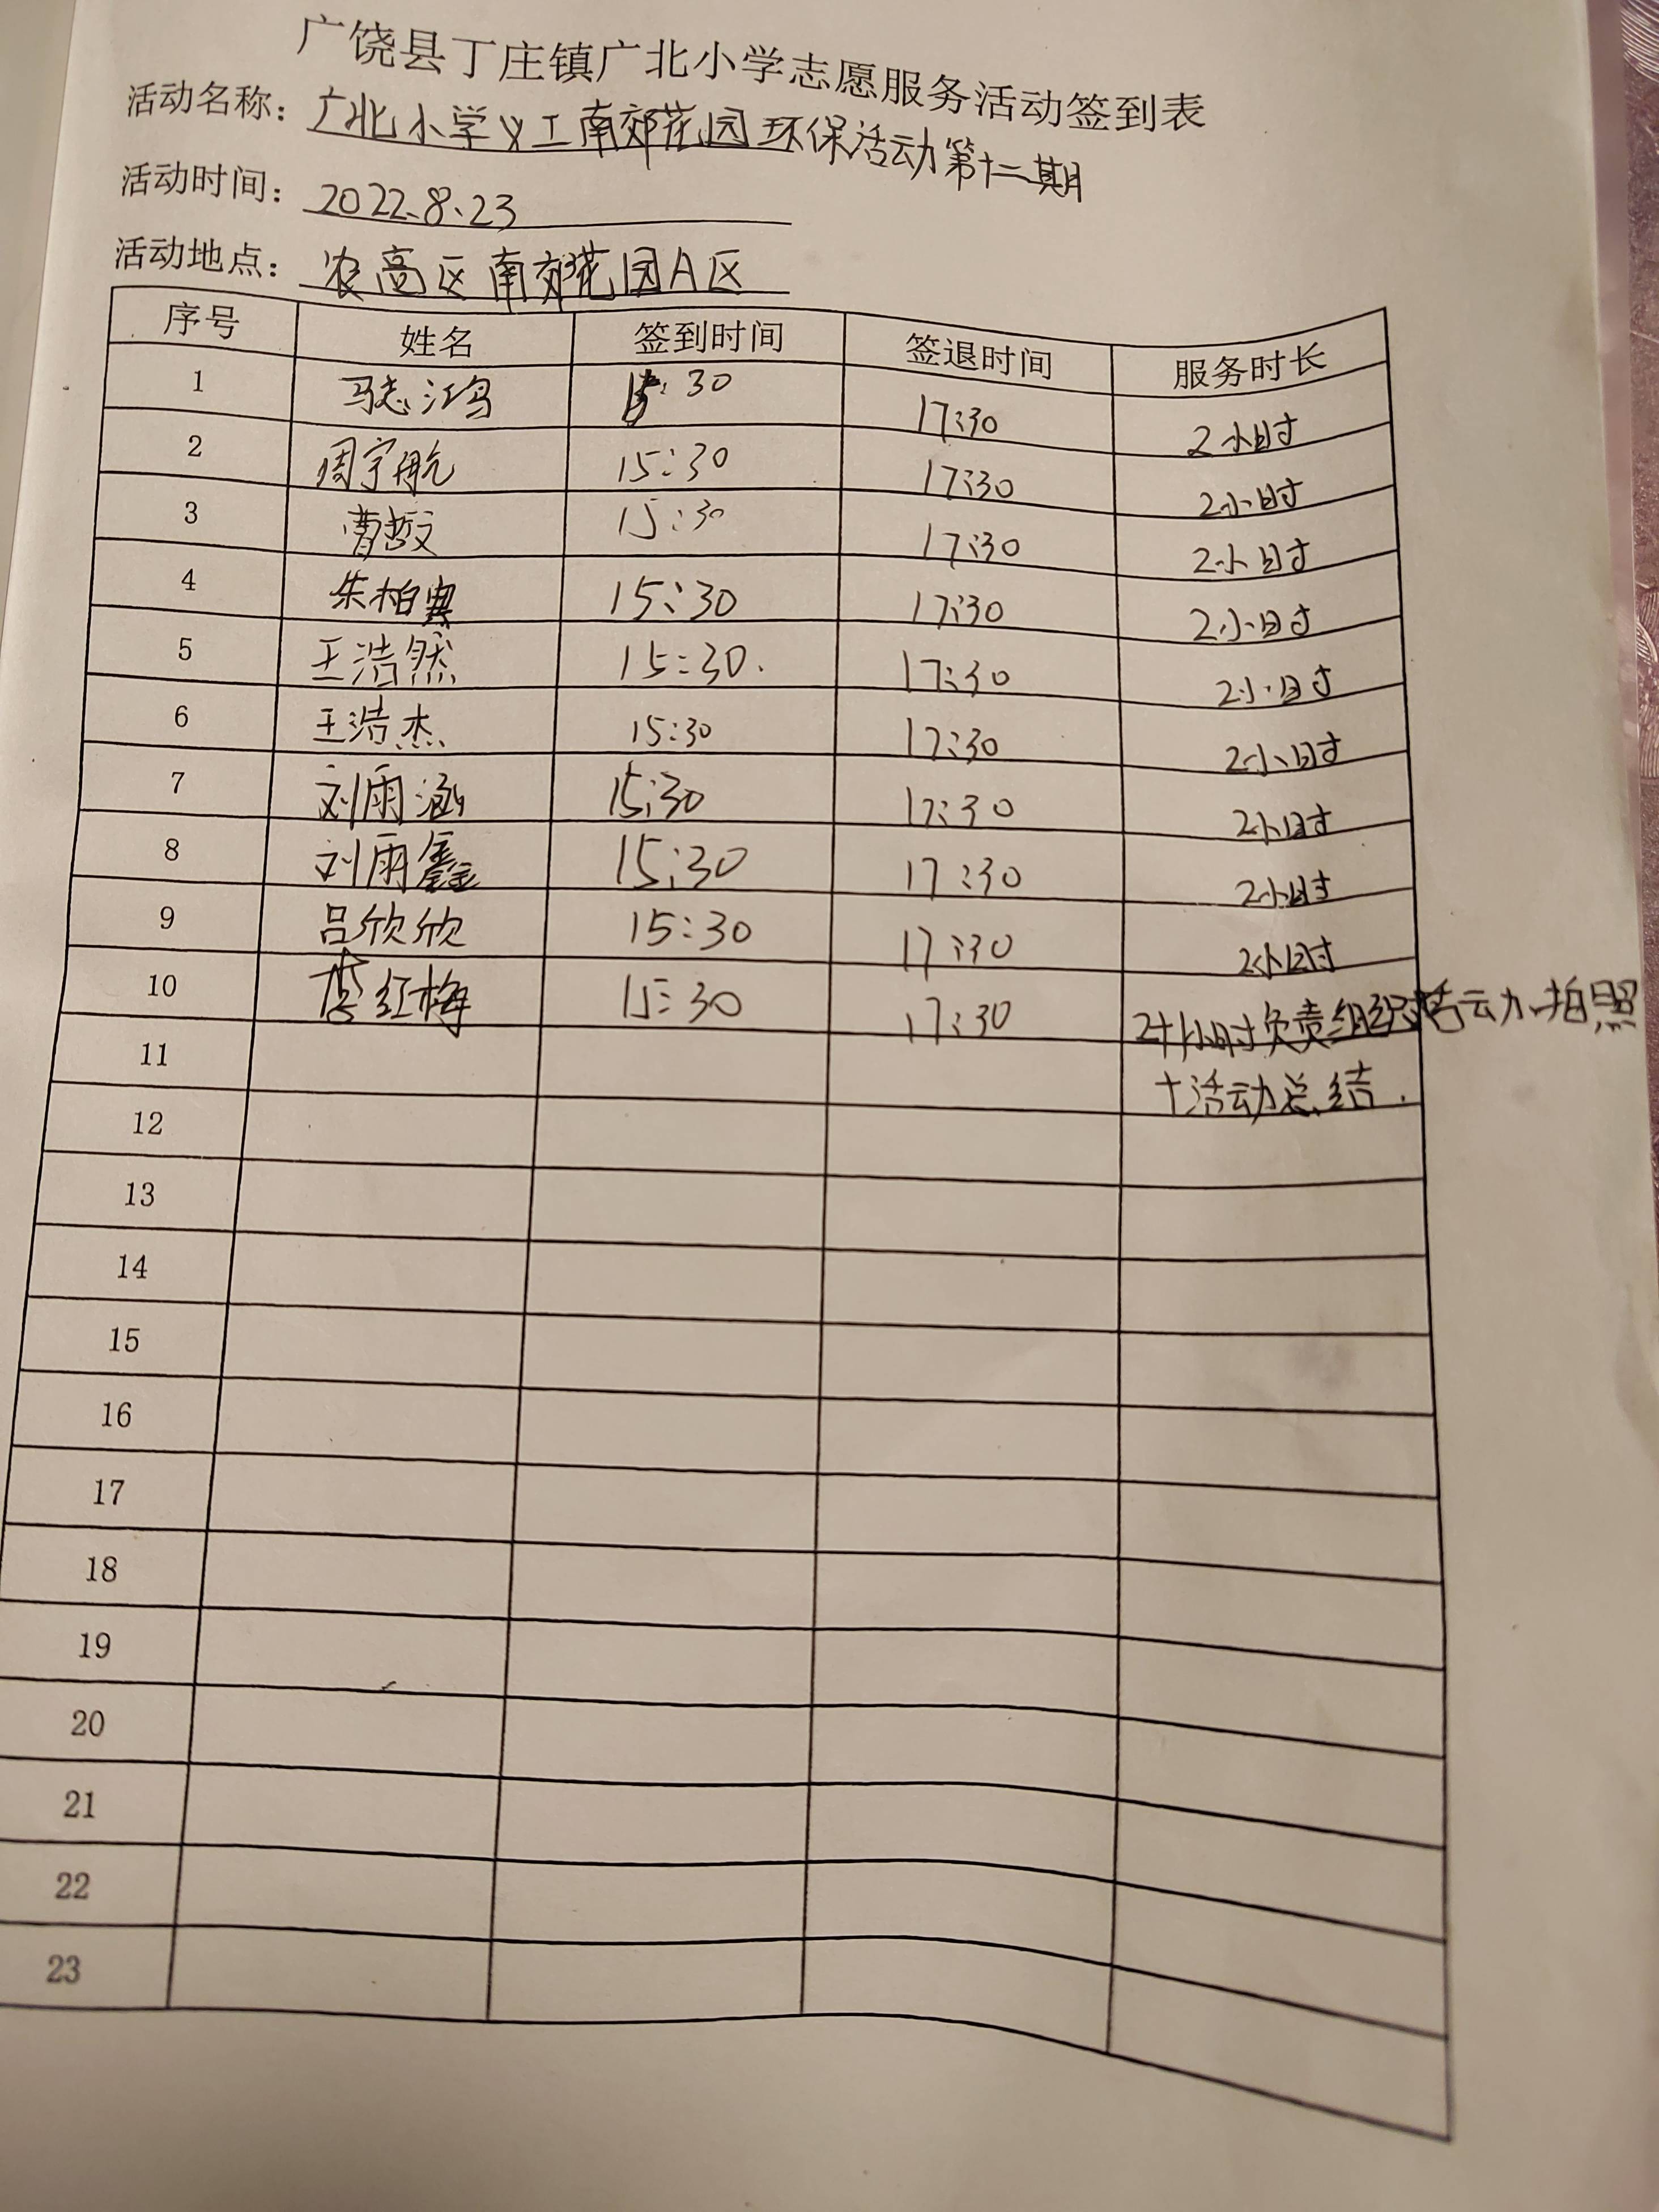 广饶县丁庄镇广北小学志愿服务活动签到表
活动名称：广北小学义工南郊花园环保活动第十二期
活动时间：2022.8.23
活动地点：农高区南郊花园A区
序号 姓名 签到时间 签退时间 服务时长
1 马志鸿 15:30 17:30 2小时
2 周宇航 15:30 17:30 2小时
3 曹哲文 15:30 17:30 2小时
4 朱柏 15:30 17:30 2小时
5 王浩然 15:30. 17:30 2小时
6 王浩杰 15:30 17:30 2小时
7 刘雨涵 15:30 17:30 2小时
8 刘雨鑫 15:30 17:30 2小时
9 吕欣欣 15:30 17:30 2小时
10 李红梅 15:30 17:30 2+1小时负责组织活动.拍照
11 +活动总结.
12
13
14
15
16
17
18
19
20
21
22
23